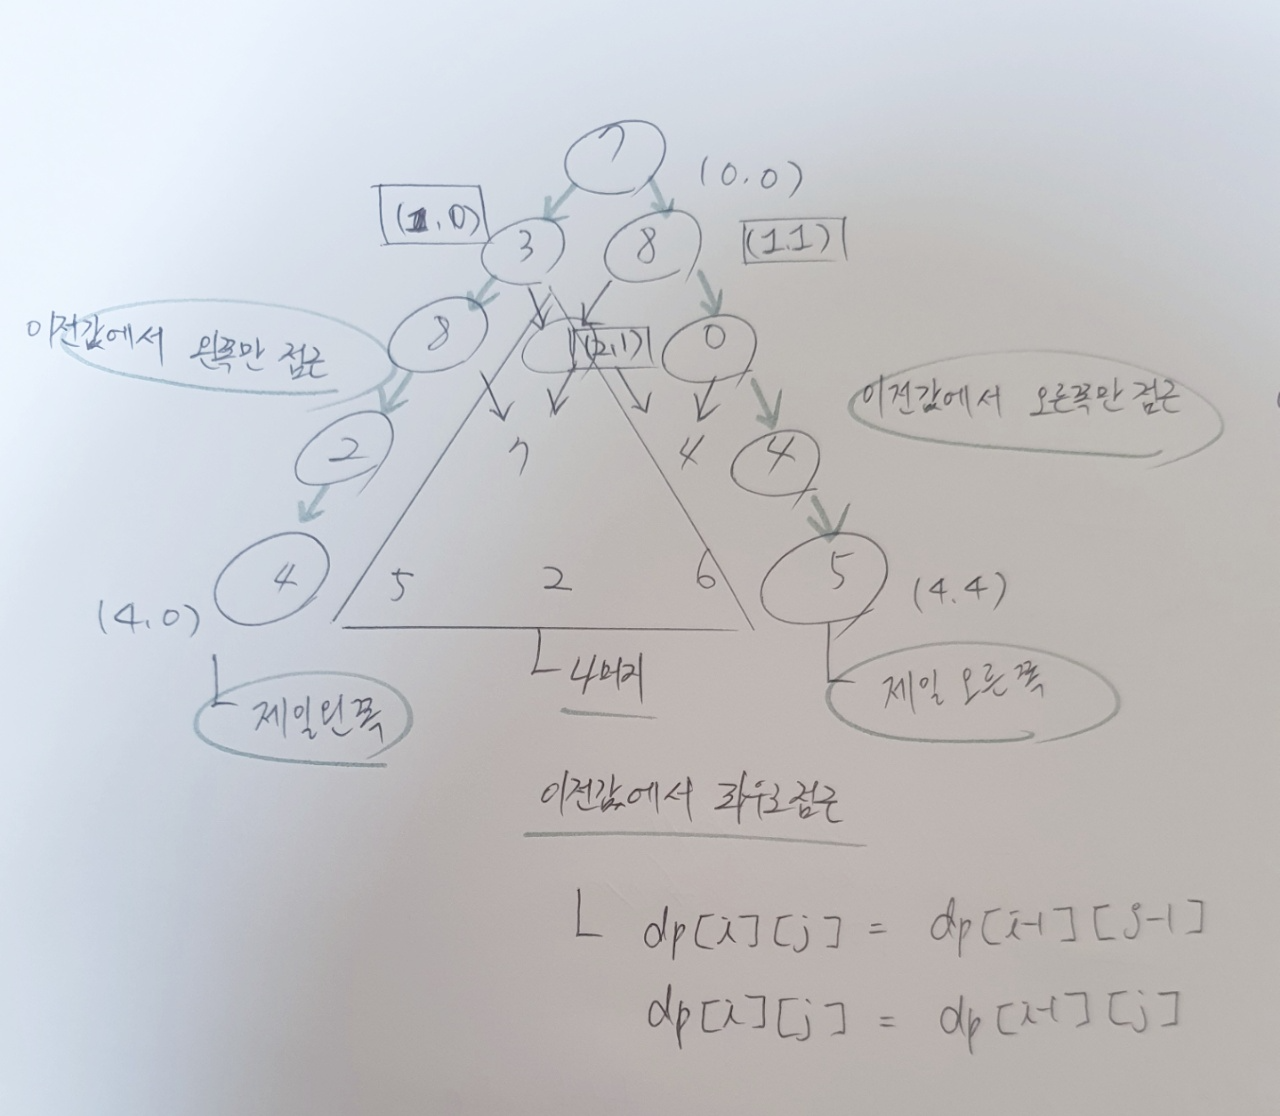 7 (0,0)
(1,0) 3 8 (1.1)
이전값에서 왼쪽만 접근 8 (2,1) 0
이전값에서 오른쪽만 접근
2 7 4 4
(4.0) 4 5 2 6 5 (4.4)
제일왼쪽 나머지 제일 오른쪽
이전값에서 좌우로접근
dp[i][j] = dp[i-1][j-1]
dp[i][j] = dp[i-1][j]